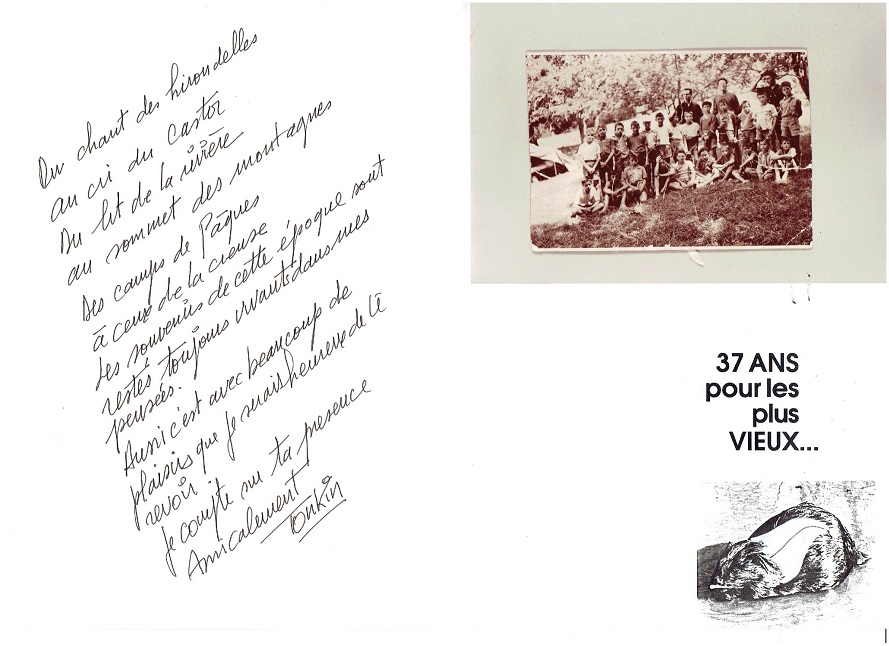 Du chant des hirondelles
au cri du castor
Du lit de la rivière
au sommet des montagnes
Des camps de Pâques
à ceux de la creuse
Les souvenirs de cette époque sont
restés toujours vivants dans mes
pensées.
Aussi c'est avec beaucoup de
plaisirs que je serais heureux de te
revoir
Je compte sur ta présence
Amicalement
Tonkin
37 ANS
pour les
plus
VIEUX...